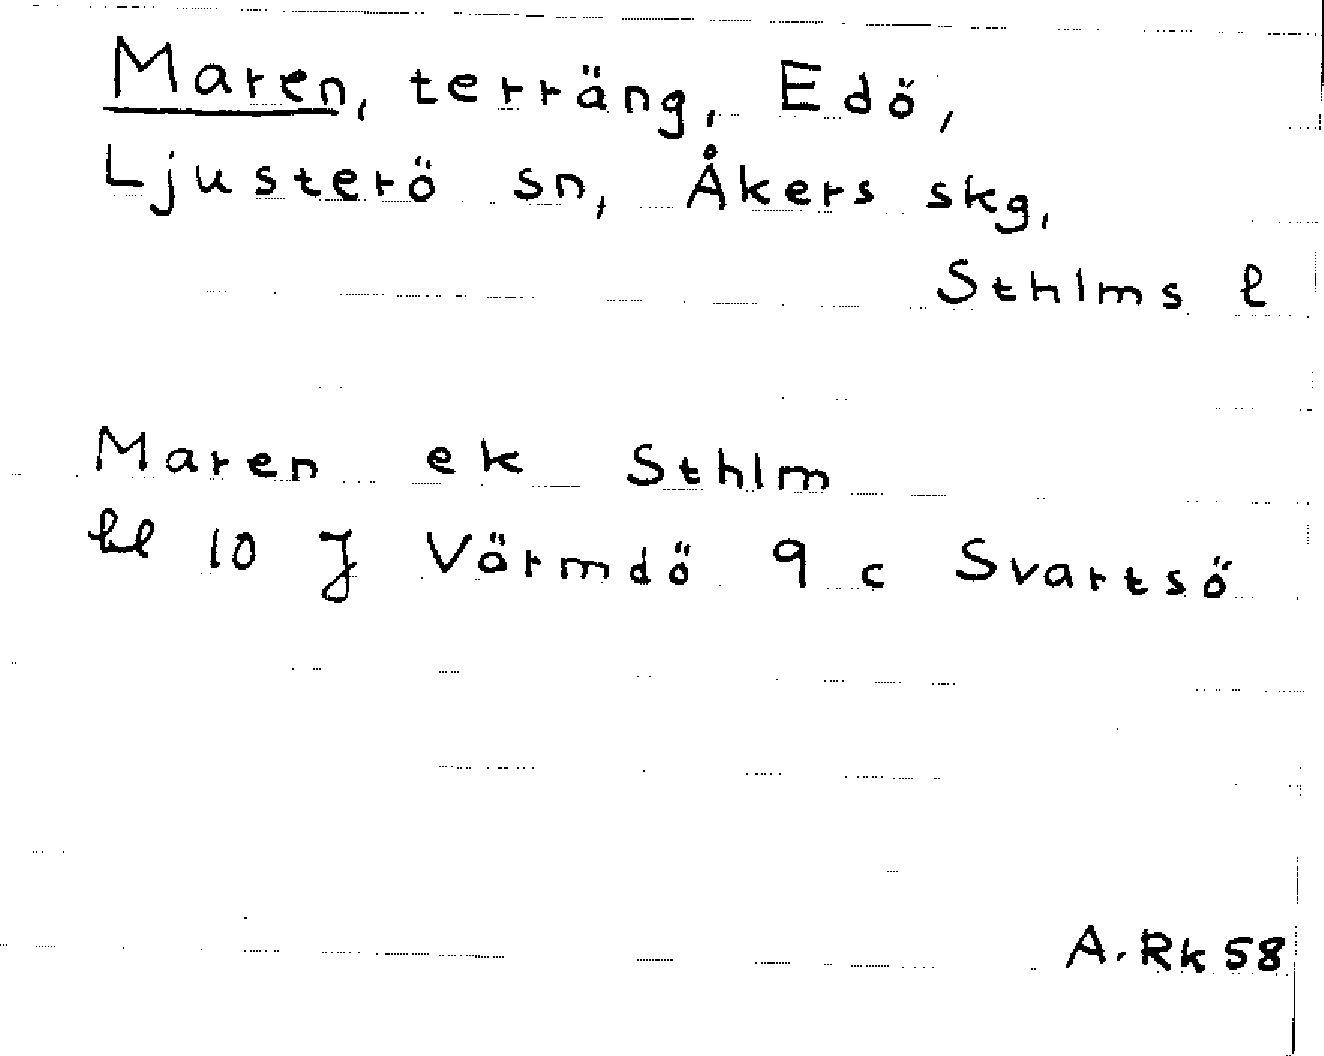 Maren, terräng, Edö,
Ljusterö sn, Åkers skg,
Sthlms l
Maren ek Sthlm
bl 10 J Värmdö 9 c Svartsö
A. Rk 58